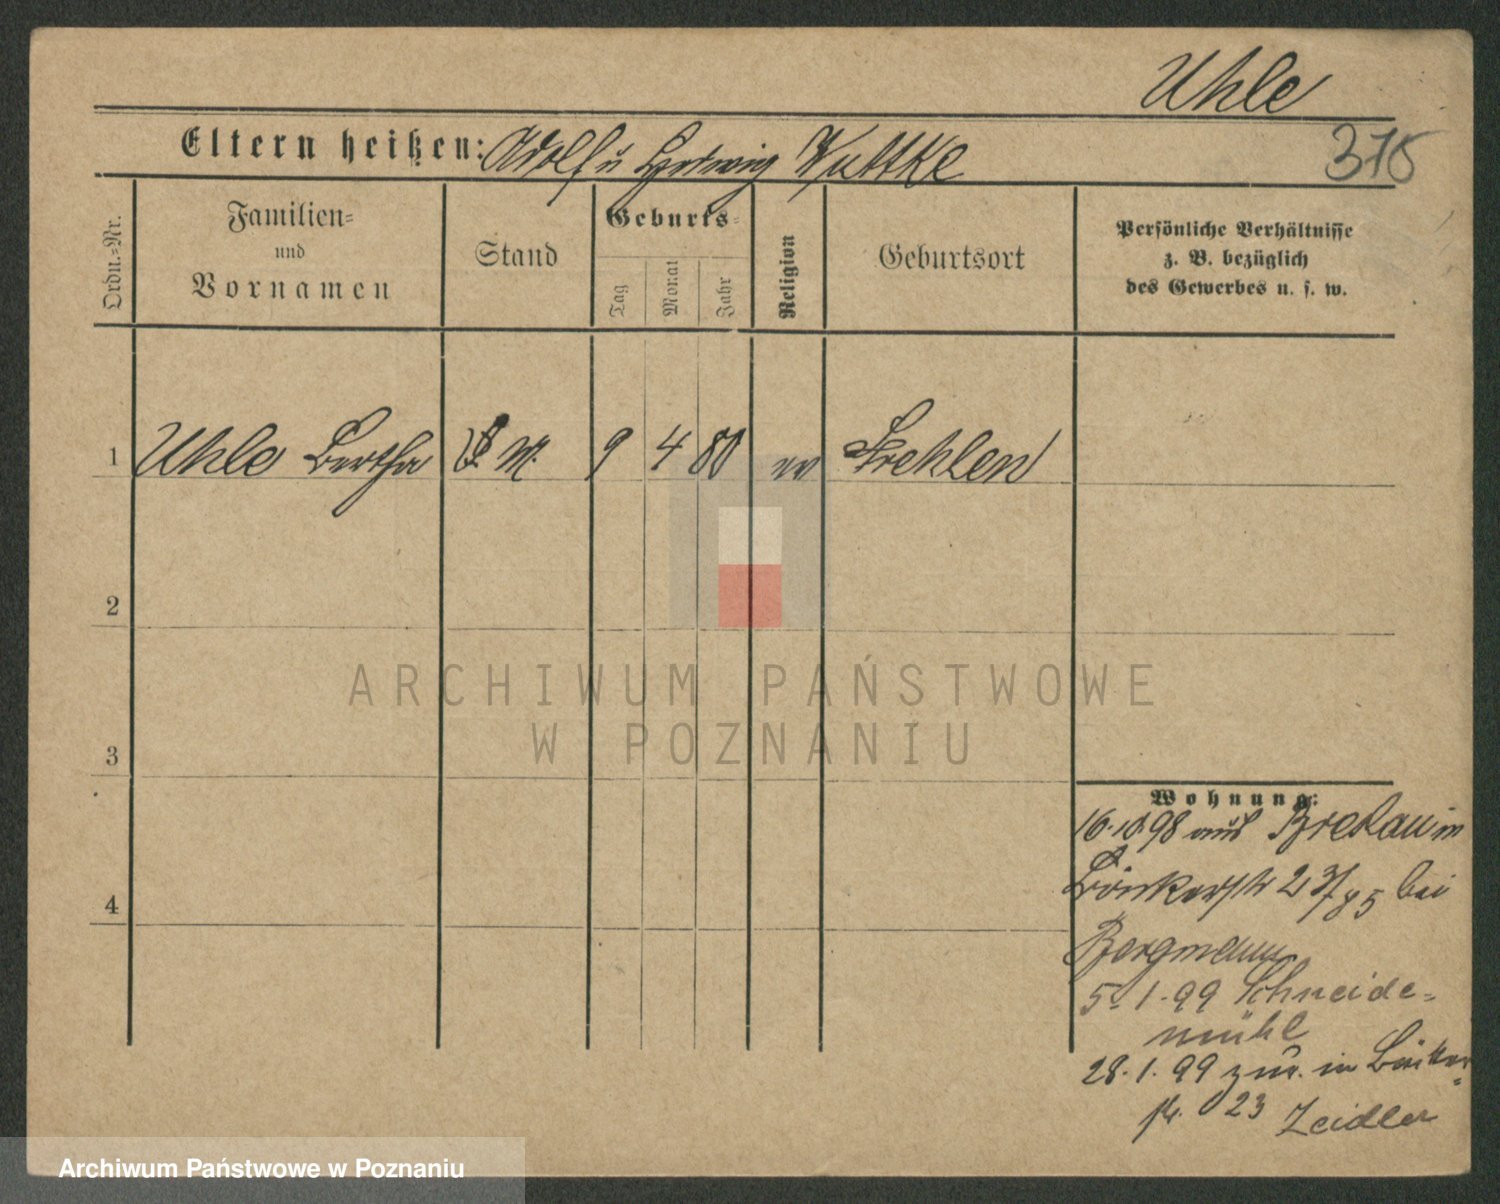 Uhle
Eltern heißen: Adolf u Hedwig Wuttke
Ordn.=Nr.
Familien=
und
Vornamen
Stand
Geburts=
Tag
Monat
Jahr
Religion
Geburtsort
Persönliche Verhältnisse
z. B. bezüglich
des Gewerbes u. s. w.
1 Uhle Bertha M. 9 4 80 ev Strehlen
2
3
4
Wohnung:
16.10.98 aus Breslau in
Bäckerstr 23/ bei
Bergmann
5.1.99 Schneide=
mühl
28.1.99 zur. in Bäcker=
str. 23 Zeidler
ARCHIWUM PAŃSTWOWE
W POZNANIU
Archiwum Państwowe w Poznaniu